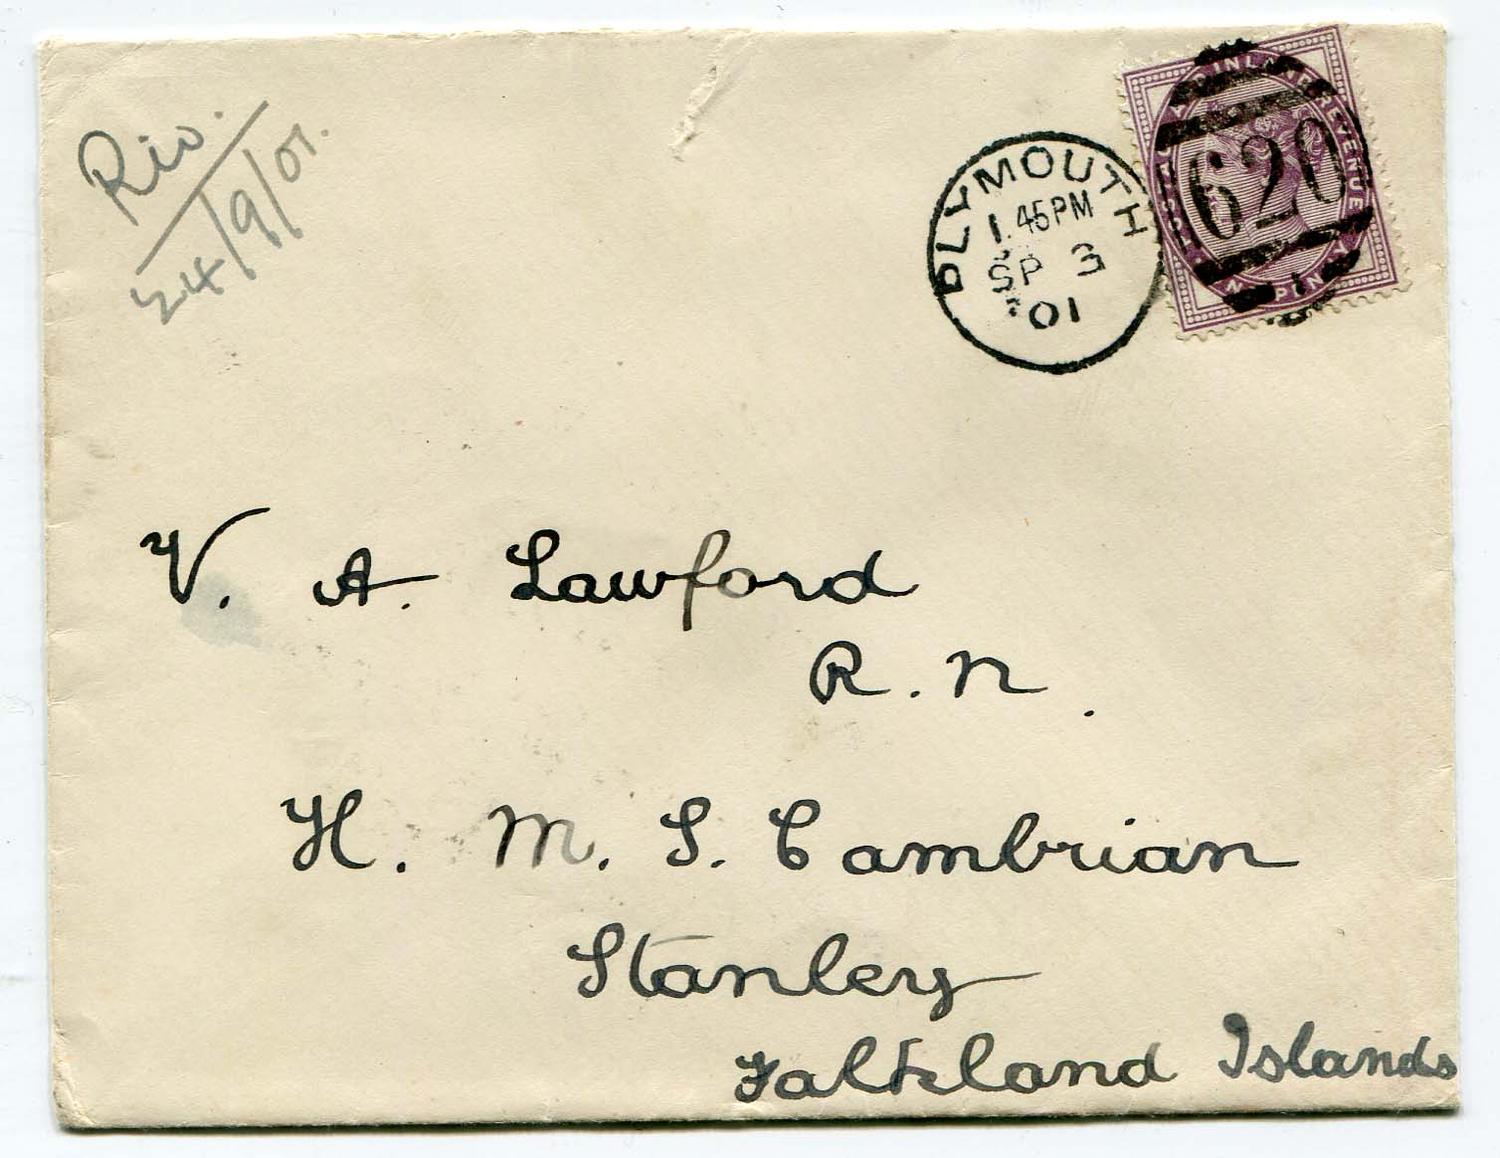 Rio.
24/9/01.
PLYMOUTH
1.45PM
SP 3
01
INLAND REVENUE
620
V. A. Lawford
R. N.
H. M. S. Cambrian
Stanley
Falkland Islands